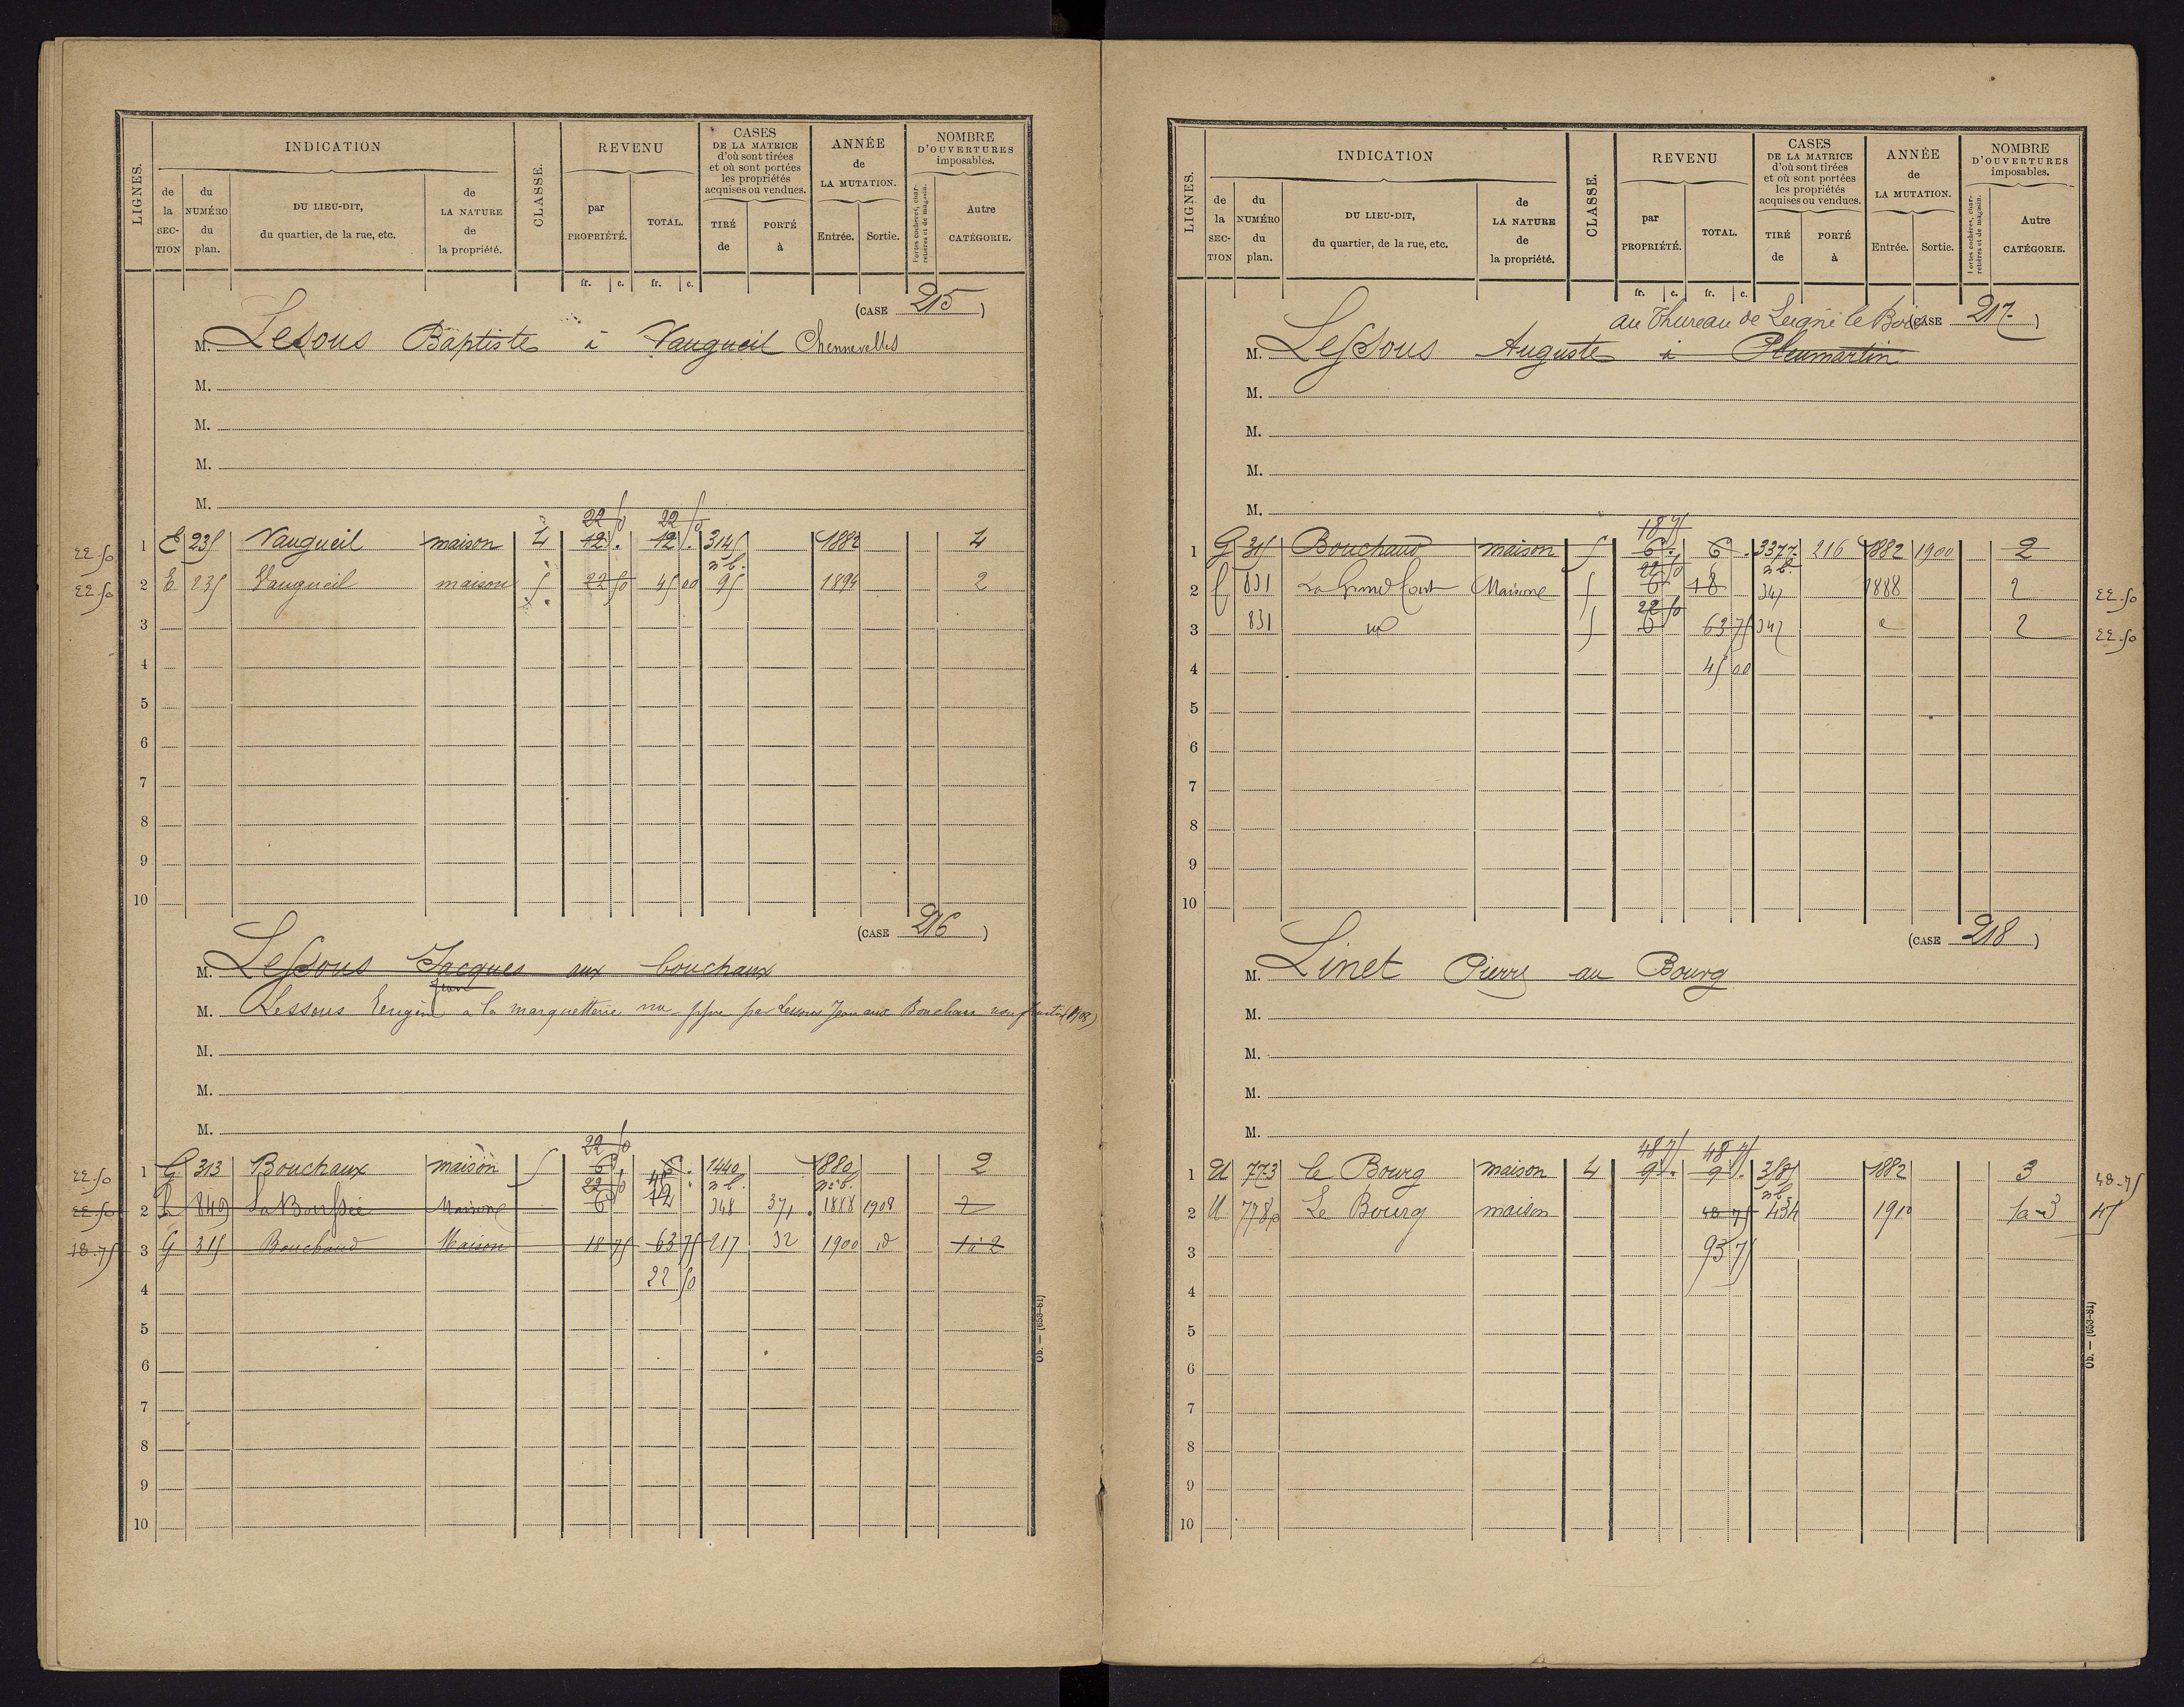 LIGNES. INDICATION CLASSE. REVENU CASES DE LA MATRICE d'où sont tirées et où sont portées les propriétés acquises ou vendues. ANNÉE de LA MUTATION. NOMBRE D'OUVERTURES imposables.
de la SECTION du NUMÉRO du plan. DU LIEU-DIT, du quartier, de la rue, etc. de LA NATURE de la propriété. par PROPRIÉTÉ. TOTAL. TIRÉ de PORTÉ à Entrée. Sortie. Portes cochères, charretières et de magasin. Autre CATÉGORIE.
fr. c. fr. c.
(CASE 215)
M. Lesous Baptiste à Vaugueil Chennevelles
M.
M.
M.
M.
22 50 22 50
22.50 1 E 235 Vaugueil maison 4 12 . 12 . 3145 1882 4
n b.
22.50 2 E 235 Vaugueil maison 5 22 50 45 00 95 1894 2
3
4
5
6
7
8
9
10
(CASE 216)
M. Lessous Jacques aux bouchaux
Jean
M. Lessous Eugène à la marquetterie nu-ppre par Lessous Jean aux Bouchaux usufruitier (1908)
M.
M.
M.
22 50
22.50 1 G 313 Bouchaux maison 5 6 6 . 1440 1880 2
22 50 45 n b. n.b.
22.50 2 840 La Boussée Maison 6 12 348 371 1888 1908 2
18.75 3 G 315 Bouchaud Maison 18 75 63 75 217 32 1900 d 1a 2
4 22 50
5
6
7
8
9
10
Ob. — (653-81)
LIGNES. INDICATION CLASSE. REVENU CASES DE LA MATRICE d'où sont tirées et où sont portées les propriétés acquises ou vendues. ANNÉE de LA MUTATION. NOMBRE D'OUVERTURES imposables.
de la SECTION du NUMÉRO du plan. DU LIEU-DIT, du quartier, de la rue, etc. de LA NATURE de la propriété. par PROPRIÉTÉ. TOTAL. TIRÉ de PORTÉ à Entrée. Sortie. Portes cochères, charretières et de magasin. Autre CATÉGORIE.
fr. c. fr. c.
au Thureau de Leigné le Bois (CASE 217)
M. Lessous Auguste à Pleumartin
M.
M.
M.
M.
18 75
1 G 315 Bouchaud maison 5 6 . 6 . 3377 216 1882 1900 2
22 50 n b.
2 831 La Grand Cour Maison 5 6 18 347 1888 2 22.50
22 50
3 831 5 6 63 75 347 2 22.50
4 45 00
5
6
7
8
9
10
(CASE 218)
M. Linet Pierre au Bourg
M.
M.
M.
M.
48 75 48 75
1 U 773 le Bourg maison 4 9 . 9 . 3185 1882 3 48.75
n b.
2 U 778p Le Bourg maison 48 75 434 1910 1a-3 45
3 93 75
4
5
6
7
8
9
10
Ob. — (653-81)